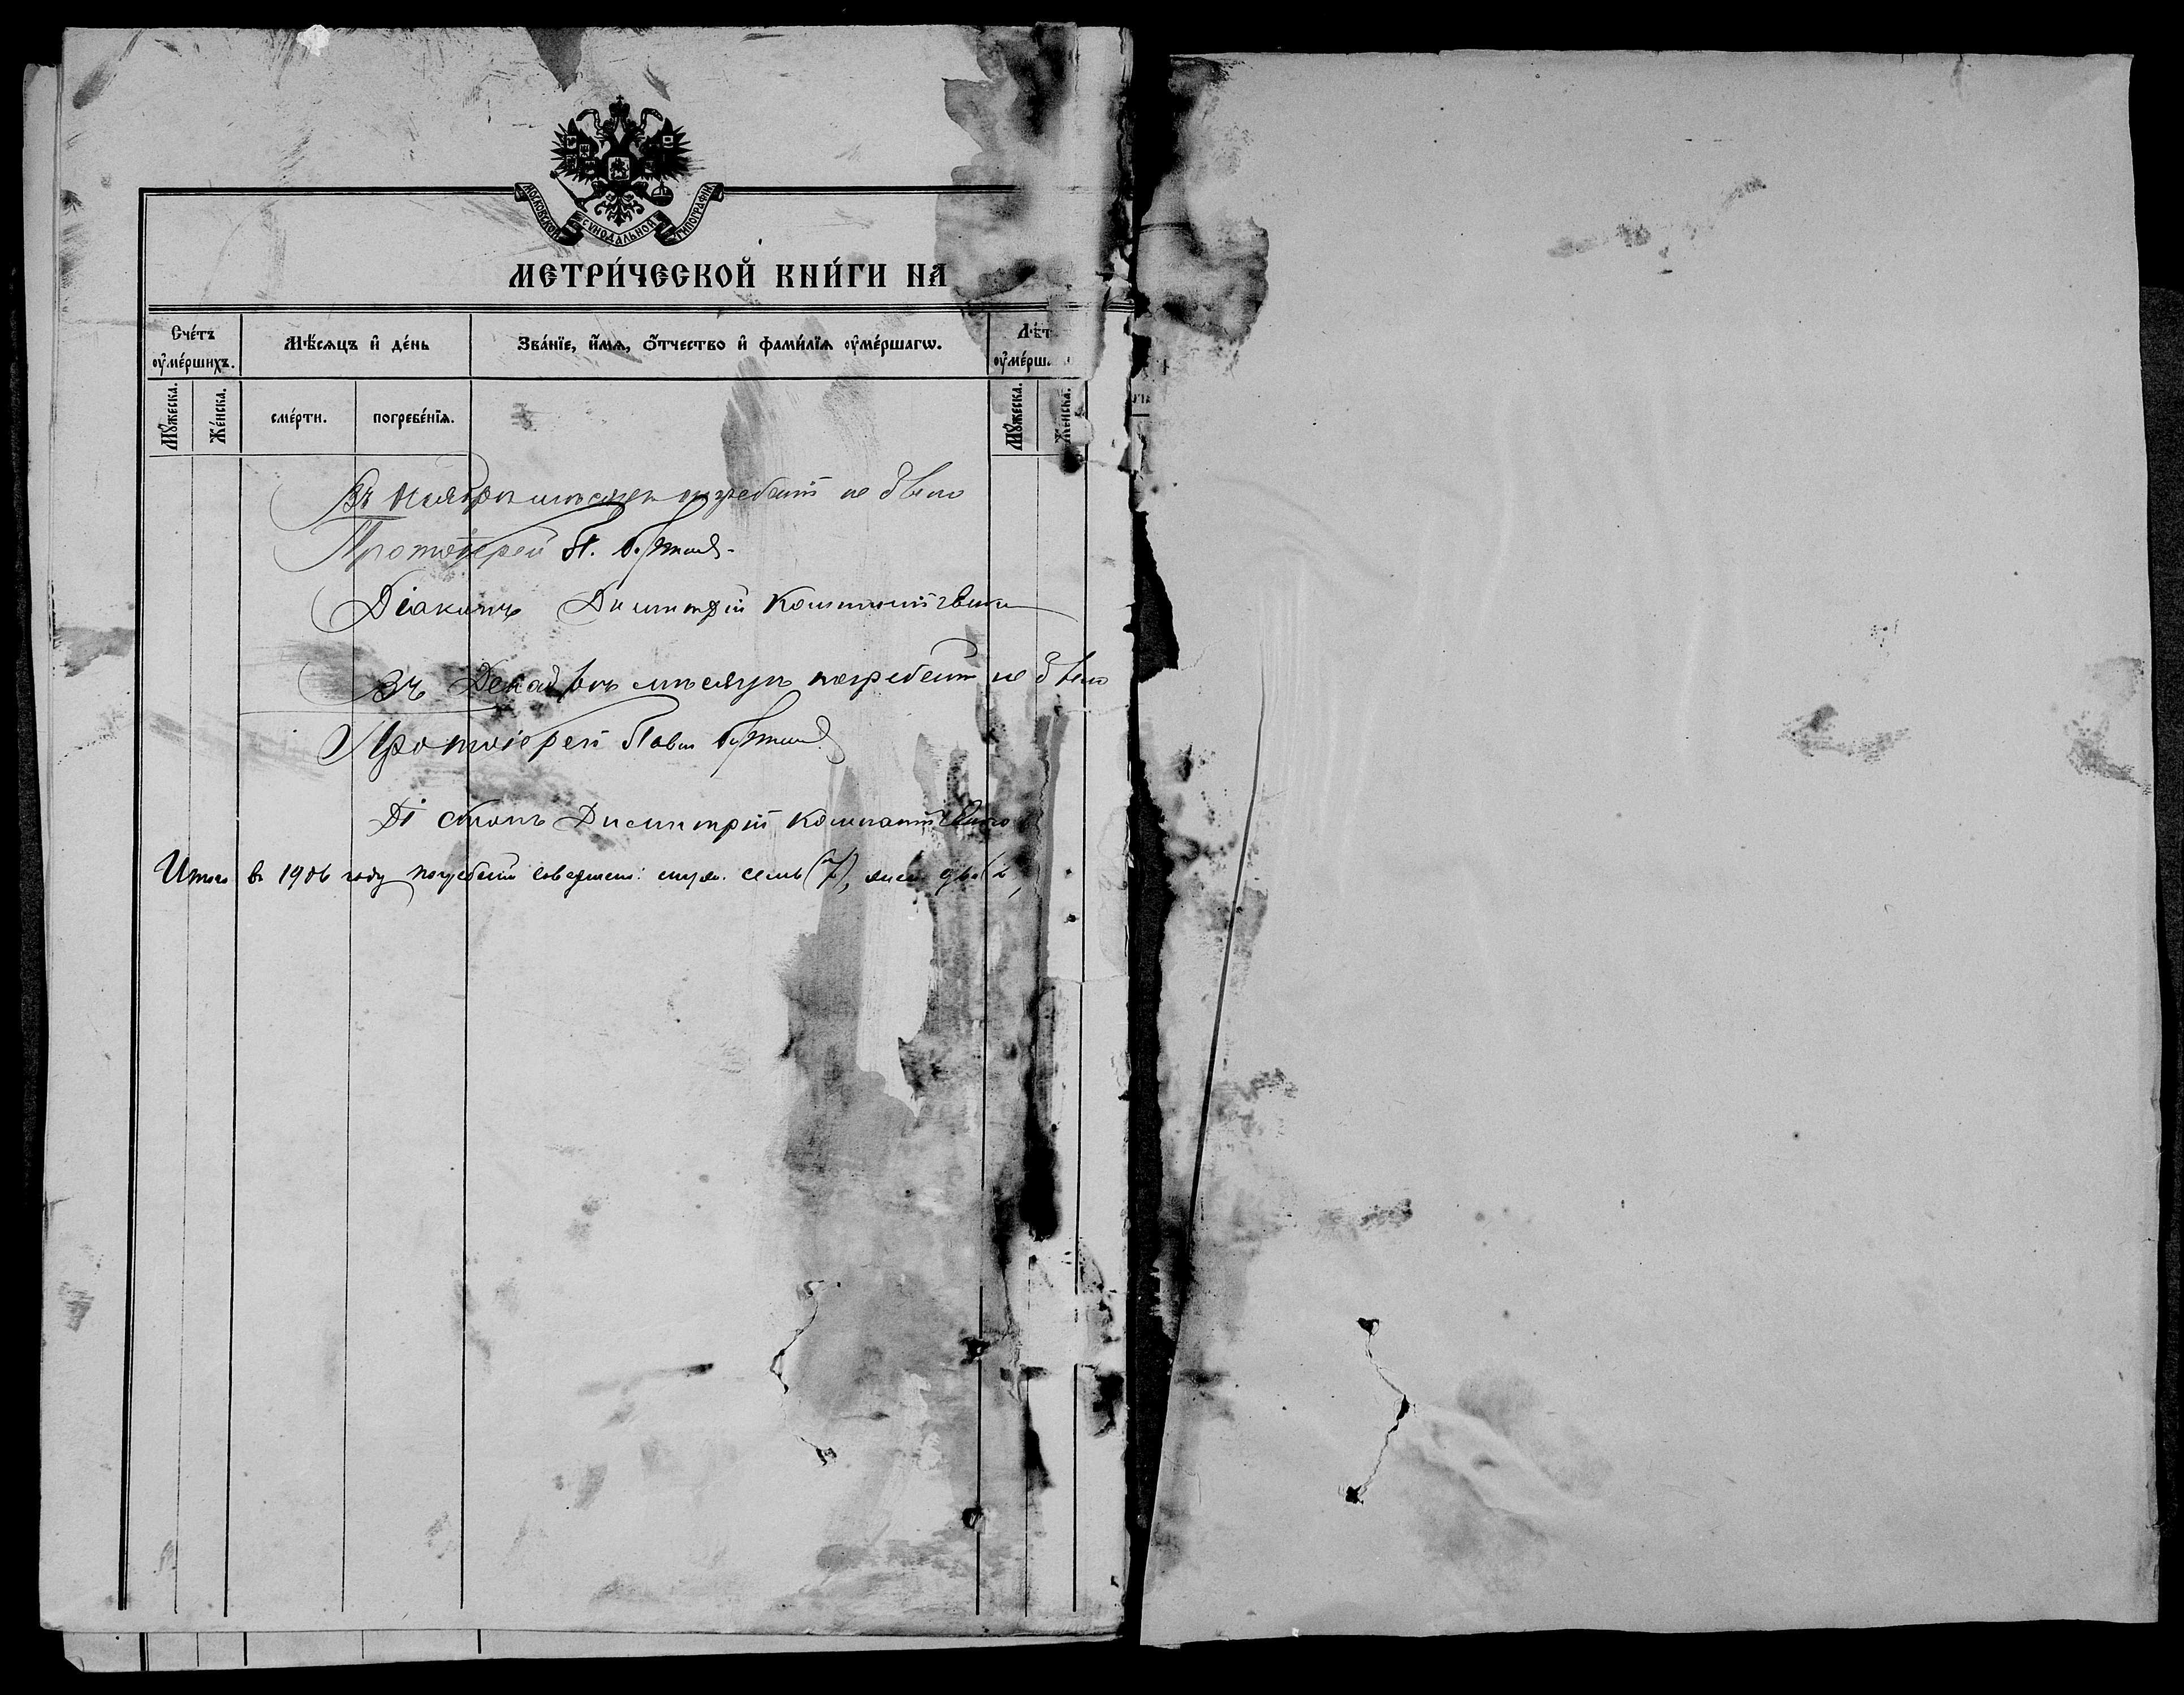 МОСКОВСКОЙ СУНОДАЛЬНОЙ ТИПОГРАФІИ
МЕТРИ́ЧЕСКОЙ КНИ́ГИ НА
Сче́тъ оу҆ме́ршихъ.
Мѣ́сѧцъ и҆ де́нь
Зва́нїе, и҆́мѧ, ѻ҆́тчество и҆ фами́лїѧ оу҆ме́ршагѡ.
Лѣ́т
оу҆ме́рш
Мꙋ́жеска.
Же́нска.
сме́рти.
погребе́нїѧ.
Мꙋ́жеска.
Же́нска.
Въ Ноябрѣ мѣсяцѣ погребеній не было
Протоіерей П.
Діаконъ Димитрій
Въ Декабрѣ мѣсяцѣ погребеній не было
Протоіерей Павел
Діаконъ Димитрій
Итого в 1906 году погребеній совершено: муж. семь (7), жен. два (2